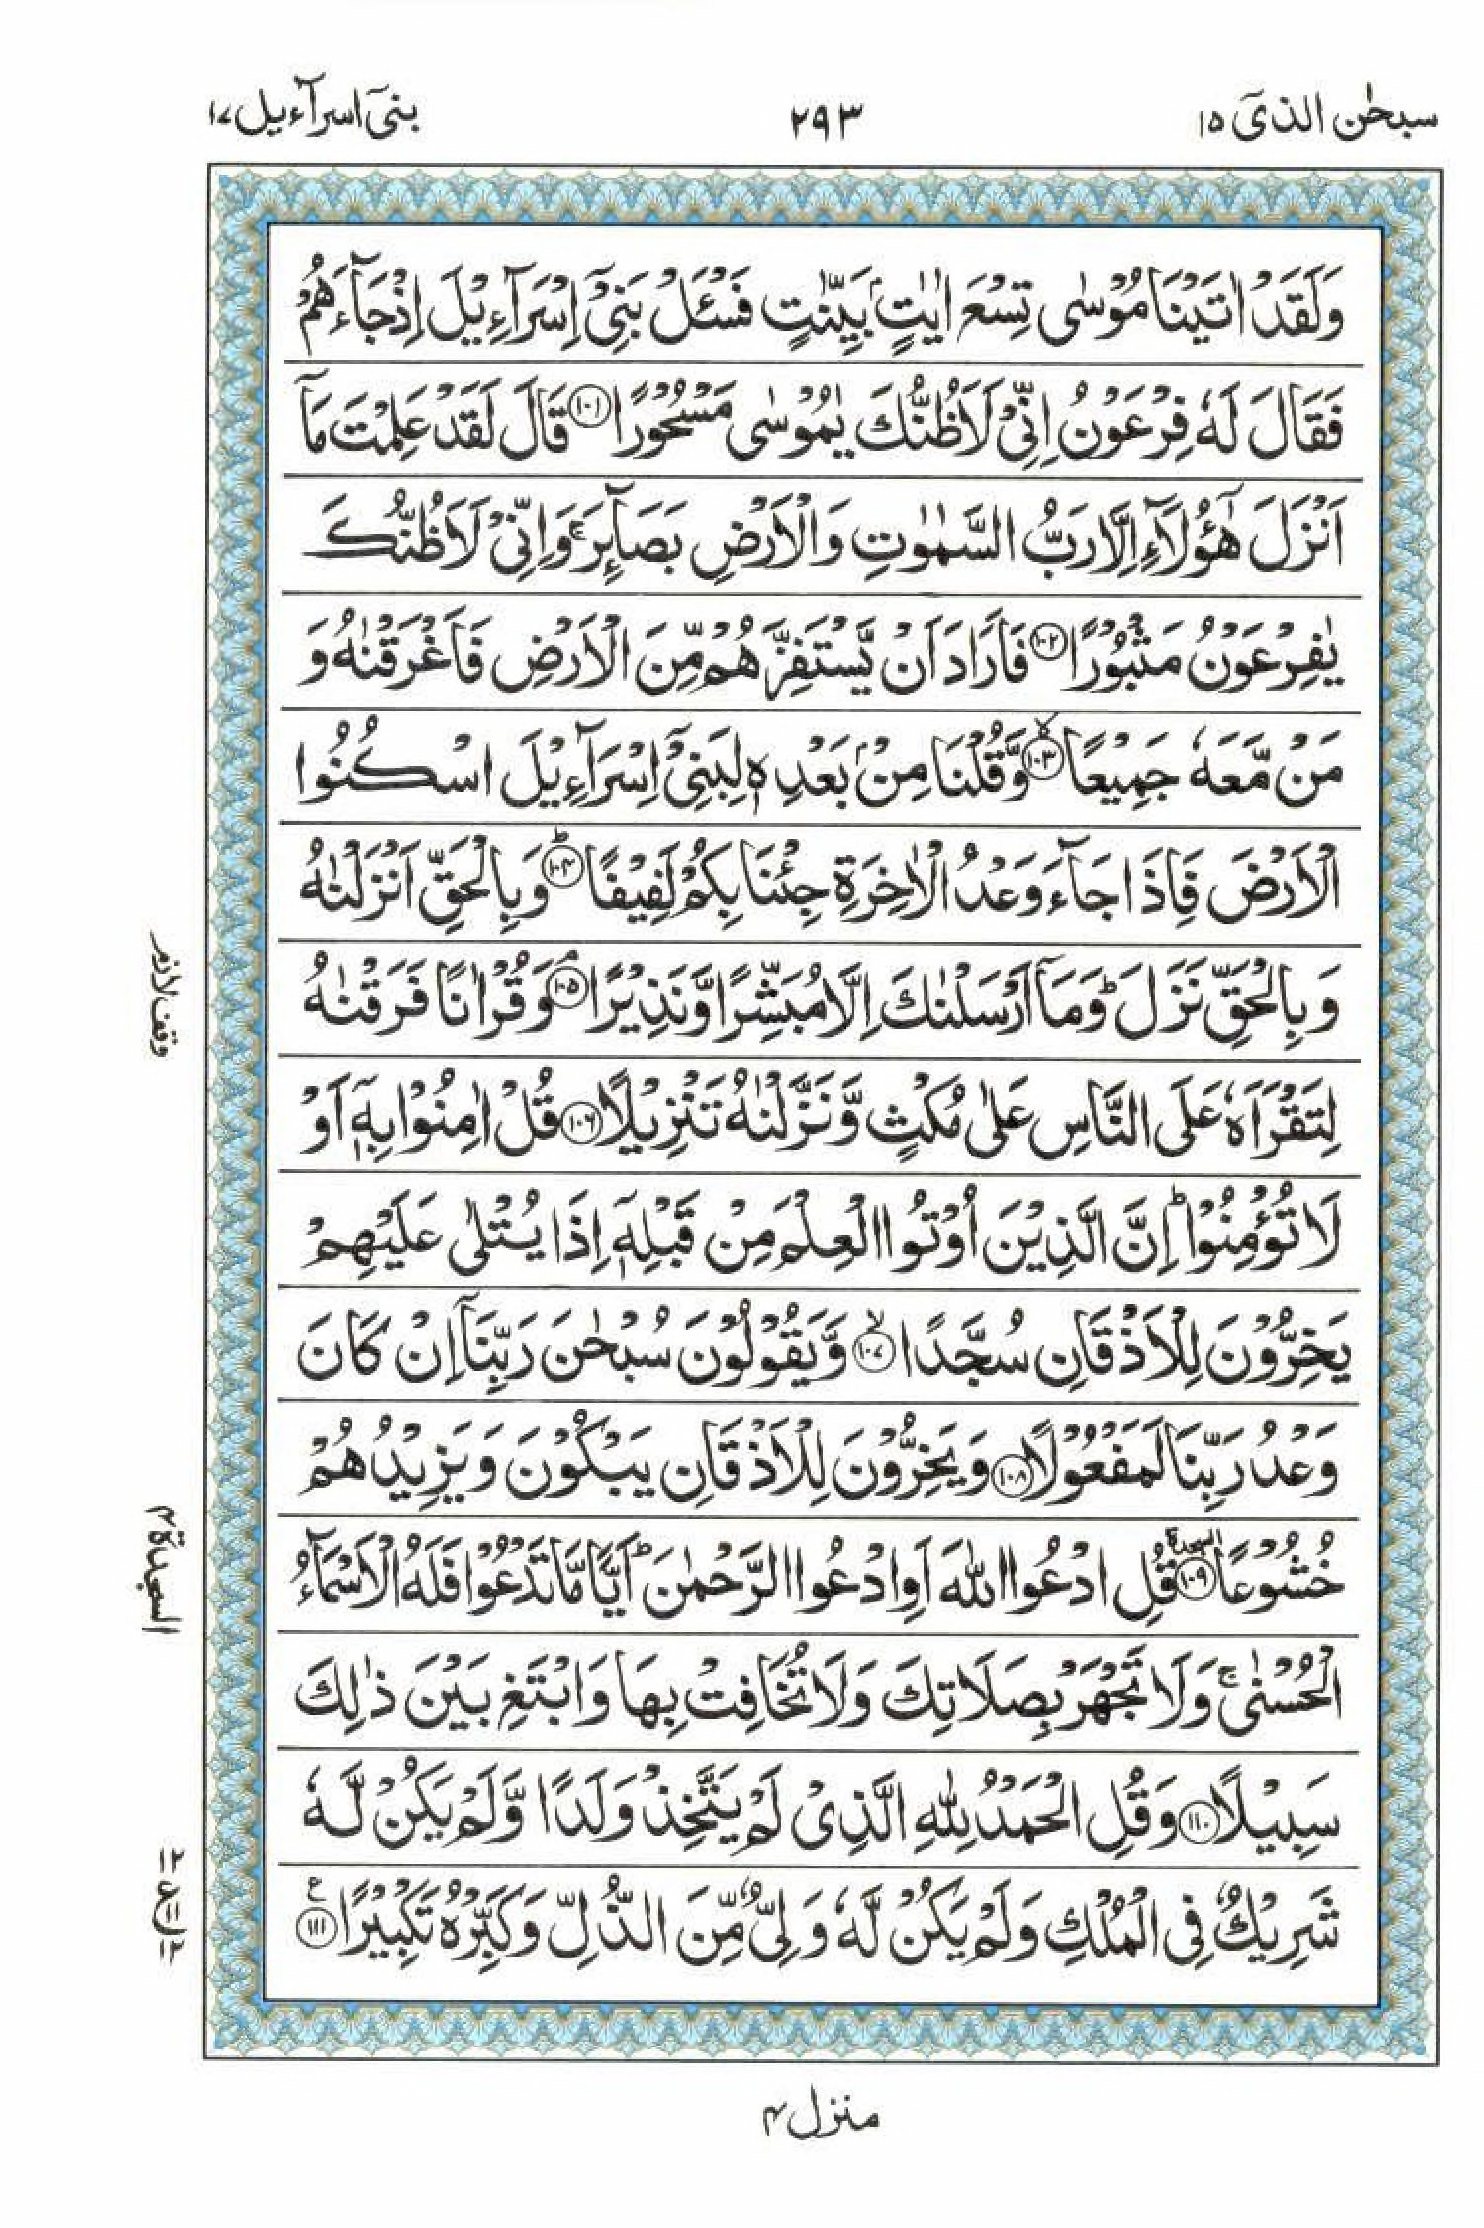 سبحٰن الذیٓ ۱۵
۲۹۳
بنیٓ اسرآءیل ۱۷
وَلَقَدْ اٰتَيْنَا مُوْسٰى تِسْعَ اٰيٰتٍۭ بَيِّنٰتٍ فَسْـَٔلْ بَنِيْۤ اِسْرَآءِيْلَ اِذْ جَآءَهُمْ
فَقَالَ لَهٗ فِرْعَوْنُ اِنِّيْ لَاَظُنُّكَ يٰمُوْسٰى مَسْحُوْرًا ۝۱۰۱ قَالَ لَقَدْ عَلِمْتَ مَاۤ
اَنْزَلَ هٰٓؤُلَآءِ اِلَّا رَبُّ السَّمٰوٰتِ وَالْاَرْضِ بَصَآئِرَ ۚ وَاِنِّيْ لَاَظُنُّكَ
يٰفِرْعَوْنُ مَثْبُوْرًا ۝۱۰۲ فَاَرَادَ اَنْ يَّسْتَفِزَّهُمْ مِّنَ الْاَرْضِ فَاَغْرَقْنٰهُ وَ
مَنْ مَّعَهٗ جَمِيْعًا ۝۱۰۳ۙ وَّقُلْنَا مِنْۢ بَعْدِهٖ لِبَنِيْۤ اِسْرَآءِيْلَ اسْكُنُوا
الْاَرْضَ فَاِذَا جَآءَ وَعْدُ الْاٰخِرَةِ جِئْنَا بِكُمْ لَفِيْفًا ۝۱۰۴ؕ وَبِالْحَقِّ اَنْزَلْنٰهُ
وَبِالْحَقِّ نَزَلَ ؕ وَمَاۤ اَرْسَلْنٰكَ اِلَّا مُبَشِّرًا وَّنَذِيْرًا ۝۱۰۵ۘ وَقُرْاٰنًا فَرَقْنٰهُ
لِتَقْرَاَهٗ عَلَى النَّاسِ عَلٰى مُكْثٍ وَّنَزَّلْنٰهُ تَنْزِيْلًا ۝۱۰۶ قُلْ اٰمِنُوْا بِهٖۤ اَوْ
لَا تُؤْمِنُوْا ؕ اِنَّ الَّذِيْنَ اُوْتُوا الْعِلْمَ مِنْ قَبْلِهٖۤ اِذَا يُتْلٰى عَلَيْهِمْ
يَخِرُّوْنَ لِلْاَذْقَانِ سُجَّدًا ۝۱۰۷ۙ وَّيَقُوْلُوْنَ سُبْحٰنَ رَبِّنَاۤ اِنْ كَانَ
وَعْدُ رَبِّنَا لَمَفْعُوْلًا ۝۱۰۸ وَيَخِرُّوْنَ لِلْاَذْقَانِ يَبْكُوْنَ وَيَزِيْدُهُمْ
خُشُوْعًا ۝۱۰۹ السجدة قُلِ ادْعُوا اللّٰهَ اَوِ ادْعُوا الرَّحْمٰنَ ؕ اَيًّا مَّا تَدْعُوْا فَلَهُ الْاَسْمَآءُ
الْحُسْنٰى ۚ وَلَا تَجْهَرْ بِصَلَاتِكَ وَلَا تُخَافِتْ بِهَا وَابْتَغِ بَيْنَ ذٰلِكَ
سَبِيْلًا ۝۱۱۰ وَقُلِ الْحَمْدُ لِلّٰهِ الَّذِيْ لَمْ يَتَّخِذْ وَلَدًا وَّلَمْ يَكُنْ لَّهٗ
شَرِيْكٌ فِي الْمُلْكِ وَلَمْ يَكُنْ لَّهٗ وَلِيٌّ مِّنَ الذُّلِّ وَكَبِّرْهُ تَكْبِيْرًا ۝۱۱۱ ع
وقف لازم
السجدة ۴
۱۲ ع ۱۱ ۱۲
منزل ۴